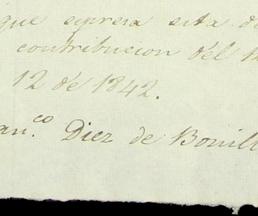 que espresa esta de
contribucion del
12 de 1842.
an.co Diez de Bonill